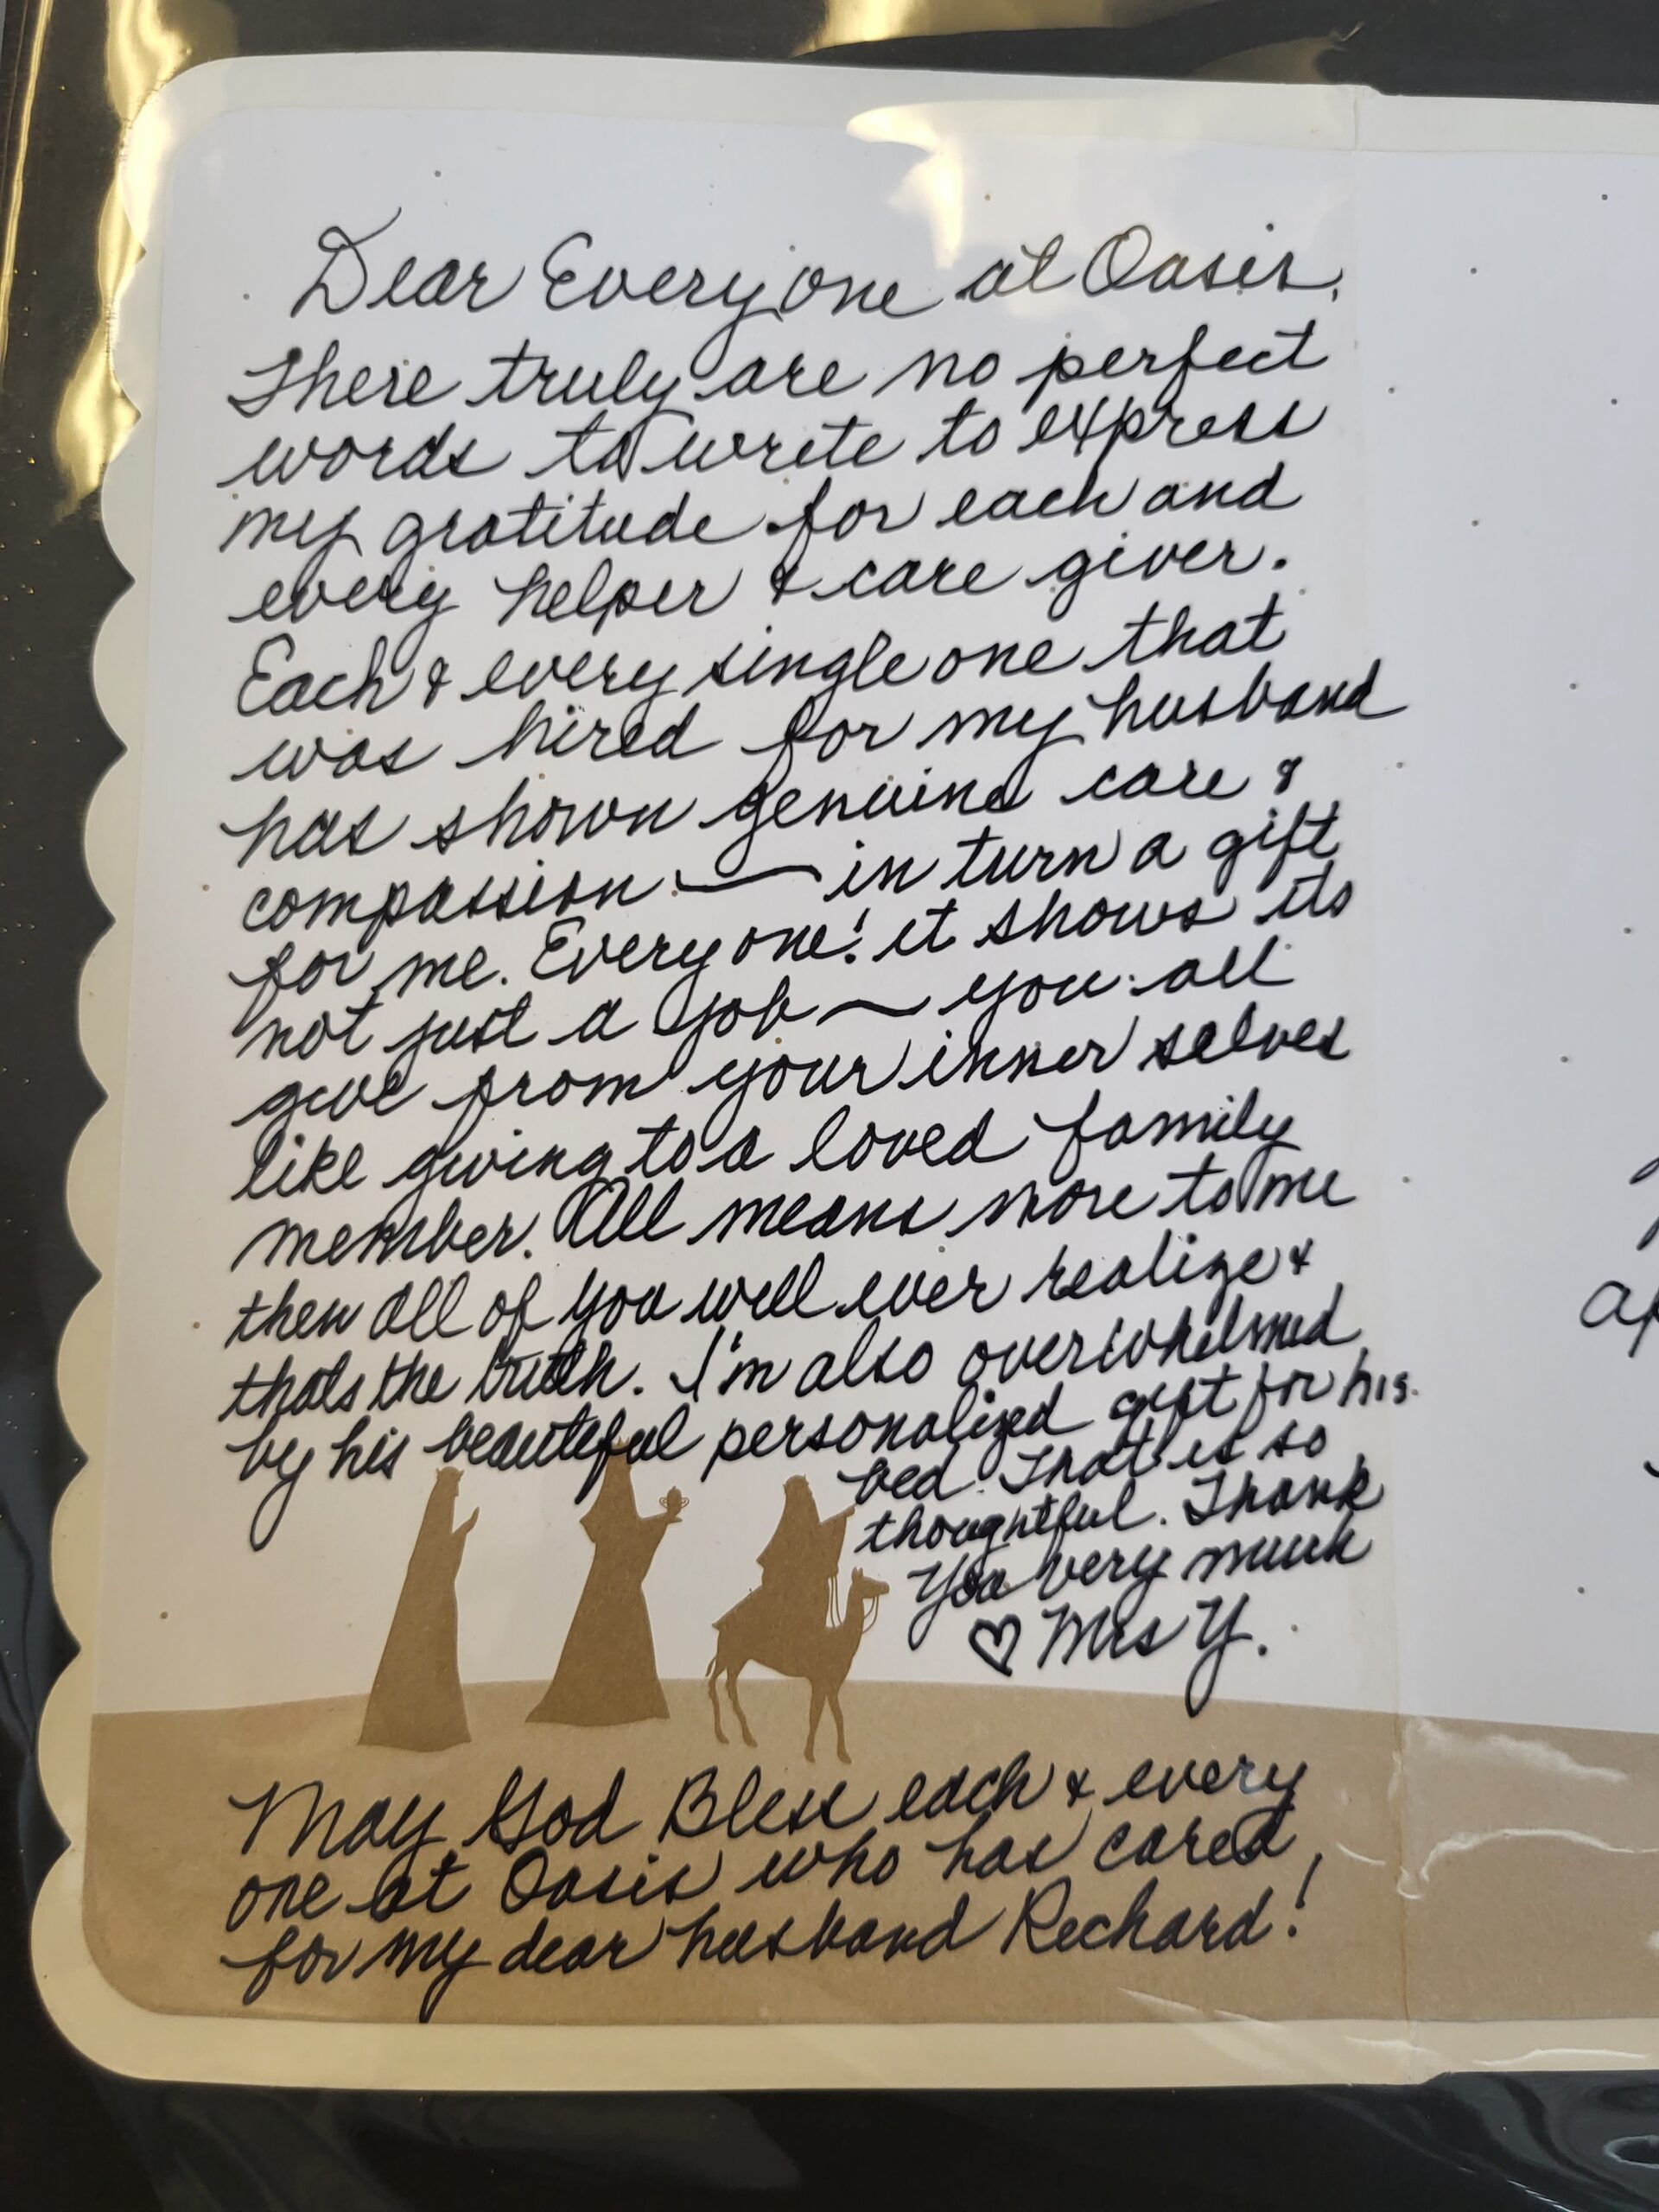 Dear Everyone at Oasis,
There truly are no perfect
words to write to express
my gratitude for each and
every helper & care giver.
Each & every single one that
was hired for my husband
has shown genuine care &
compassion — in turn a gift
for me. Everyone! it shows its
not just a job ~ you all
give from your inner selves
like giving to a loved family
member. All means more to me
then all of you will ever realize &
thats the truth. I'm also overwhelmed
by his beautiful personalized gift for his
bed. That is so
thoughtful. Thank
You very much
♡ Mrs Y.
May God Bless each & every
one at Oasis who has cared
for my dear husband Richard!